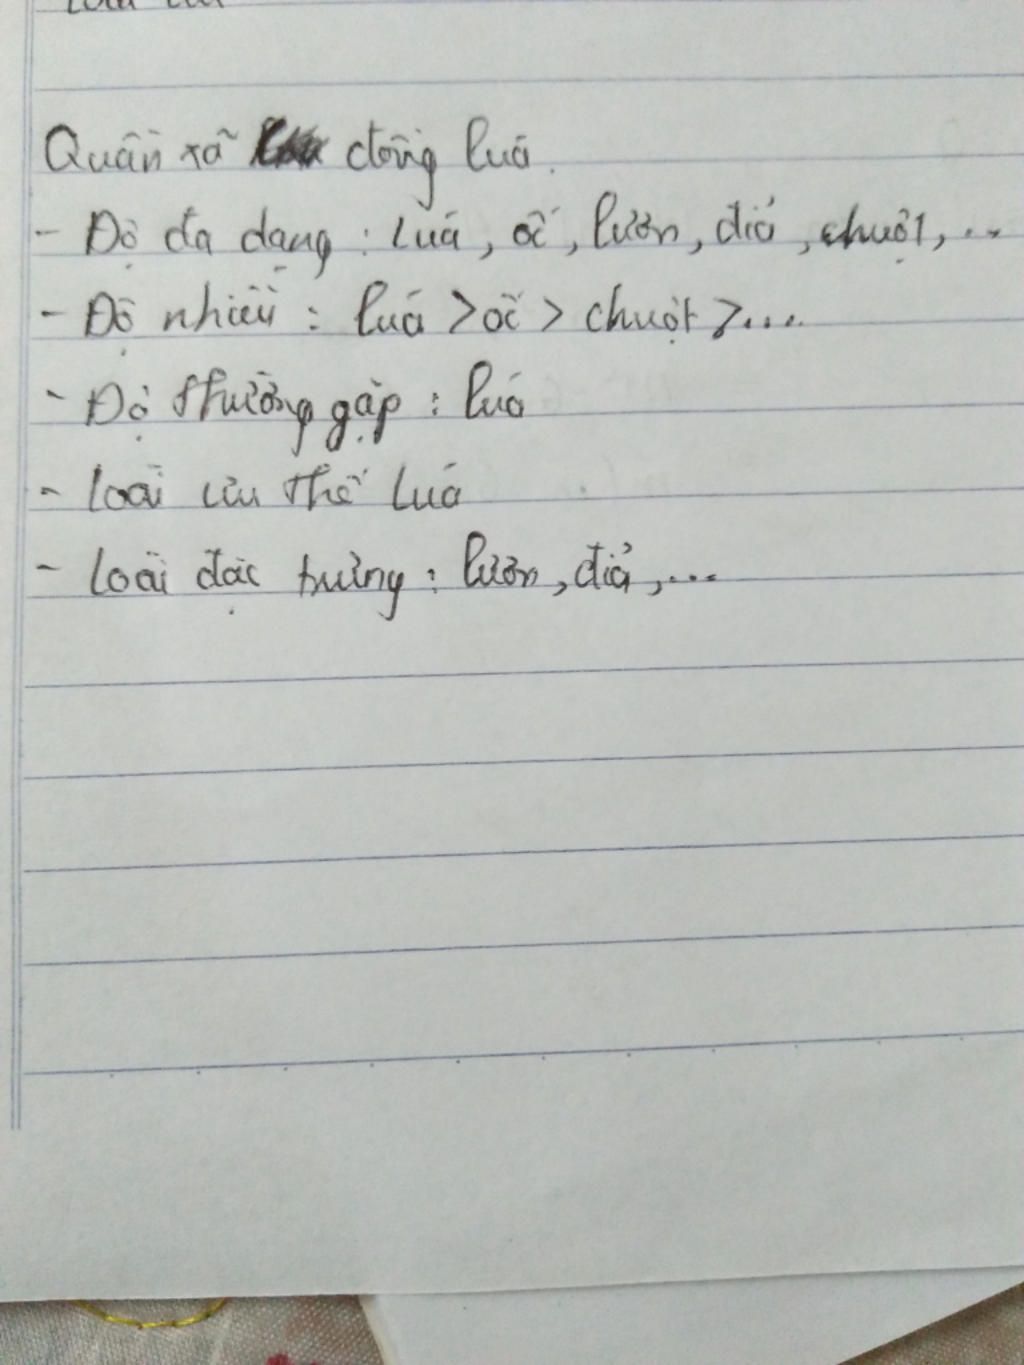 Quần xã đồng lúa.
- Độ đa dạng : Lúa, ốc, lươn, đỉa, chuột, ...
- Độ nhiều : lúa > ốc > chuột > ....
- Độ thường gặp : lúa
- Loài ưu thế Lúa
- Loài đặc trưng : lươn, đỉa, ...